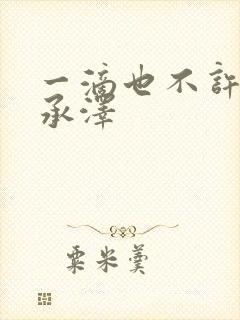 一滴也不許
承澤
粟米羹